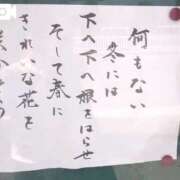 何もない
冬には
下へ下へ根をはらせ
そして春に
きれいな花を
咲かそう